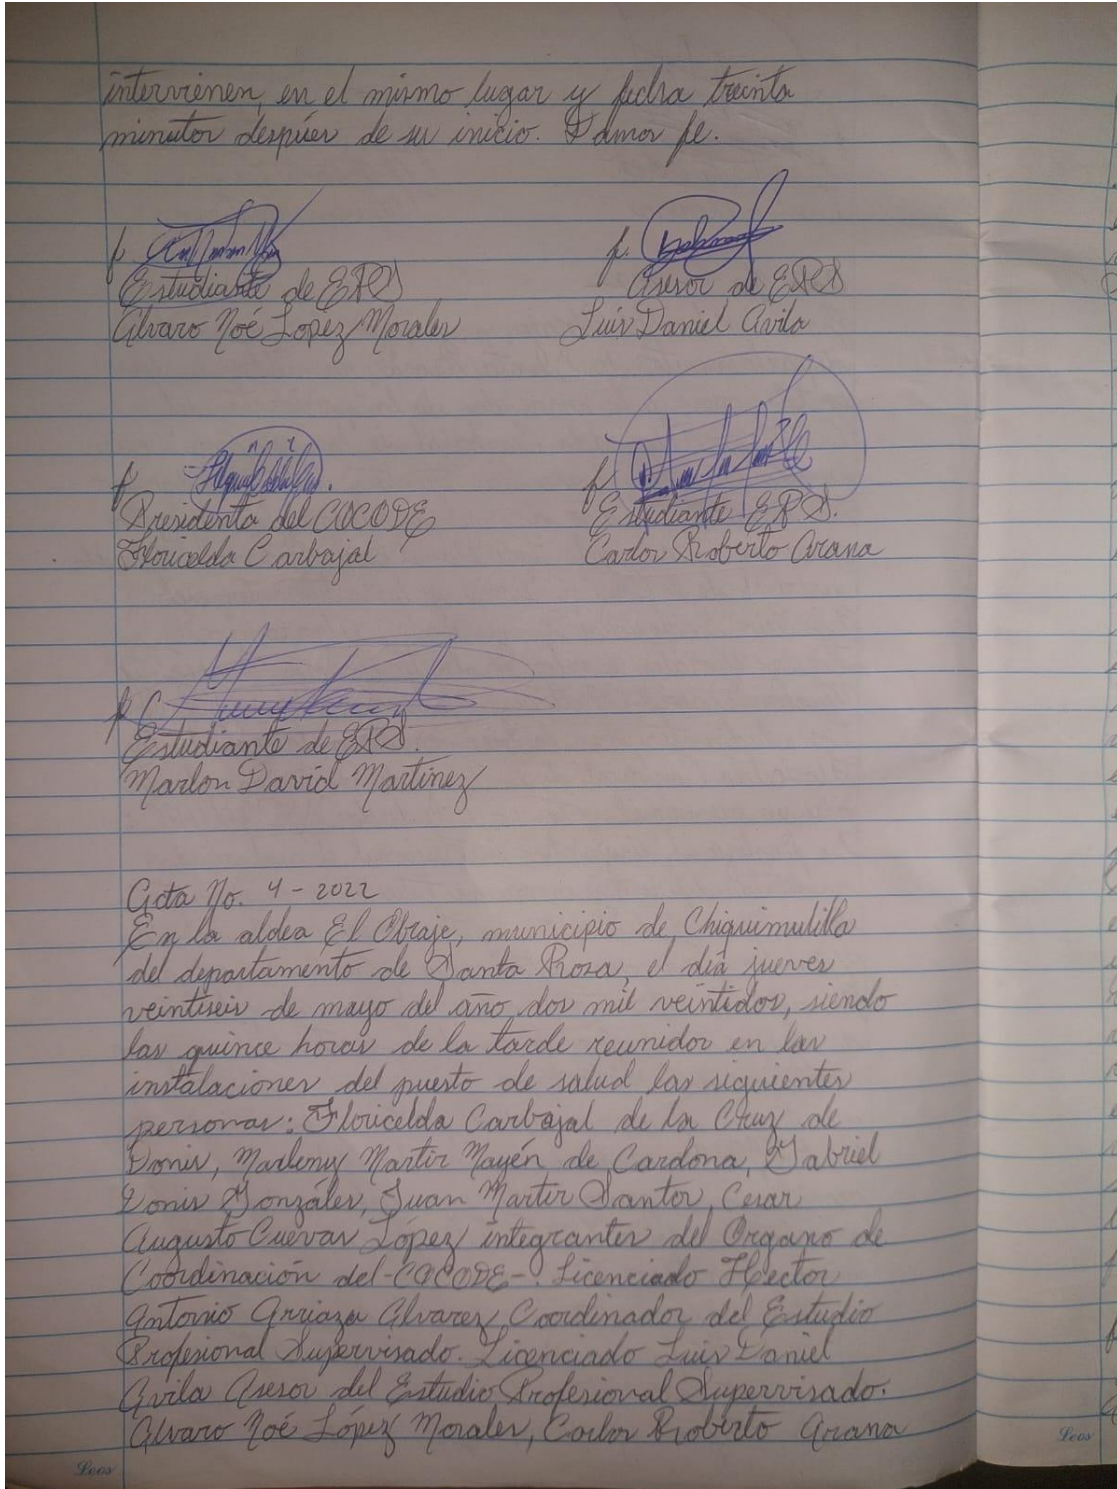 intervienen, en el mismo lugar y fecha treinta
minutos después de su inicio. Damos fe.
f. f.
Estudiante de EPS Asesor de EPS
Alvaro Noé Lopez Morales Luis Daniel Avila
f. f.
Presidenta del COCODE Estudiante EPS.
Floricelda Carbajal Carlos Roberto Arana
f.
Estudiante de EPS.
Marlon David Martinez
Acta No. 4 - 2022
En la aldea El Obraje, municipio de Chiquimulilla
del departamento de Santa Rosa, el día jueves
veintiseis de mayo del año dos mil veintidos, siendo
las quince horas de la tarde reunidos en las
instalaciones del puesto de salud las siguientes
personas: Floricelda Carbajal de la Cruz de
Donis, Marleny Martir Mayén de Cardona, Gabriel
Donis Gonzáles, Juan Martir Santos, Cesar
Augusto Cuevas López integrantes del Organo de
Coordinación del -COCODE-. Licenciado Hector
Antonio Arriaza Alvarez, Coordinador del Estudio
Profesional Supervisado. Licenciado Luis Daniel
Avila Asesor del Estudio Profesional Supervisado.
Alvaro Noé López Morales, Carlos Roberto Arana
Leos Leos